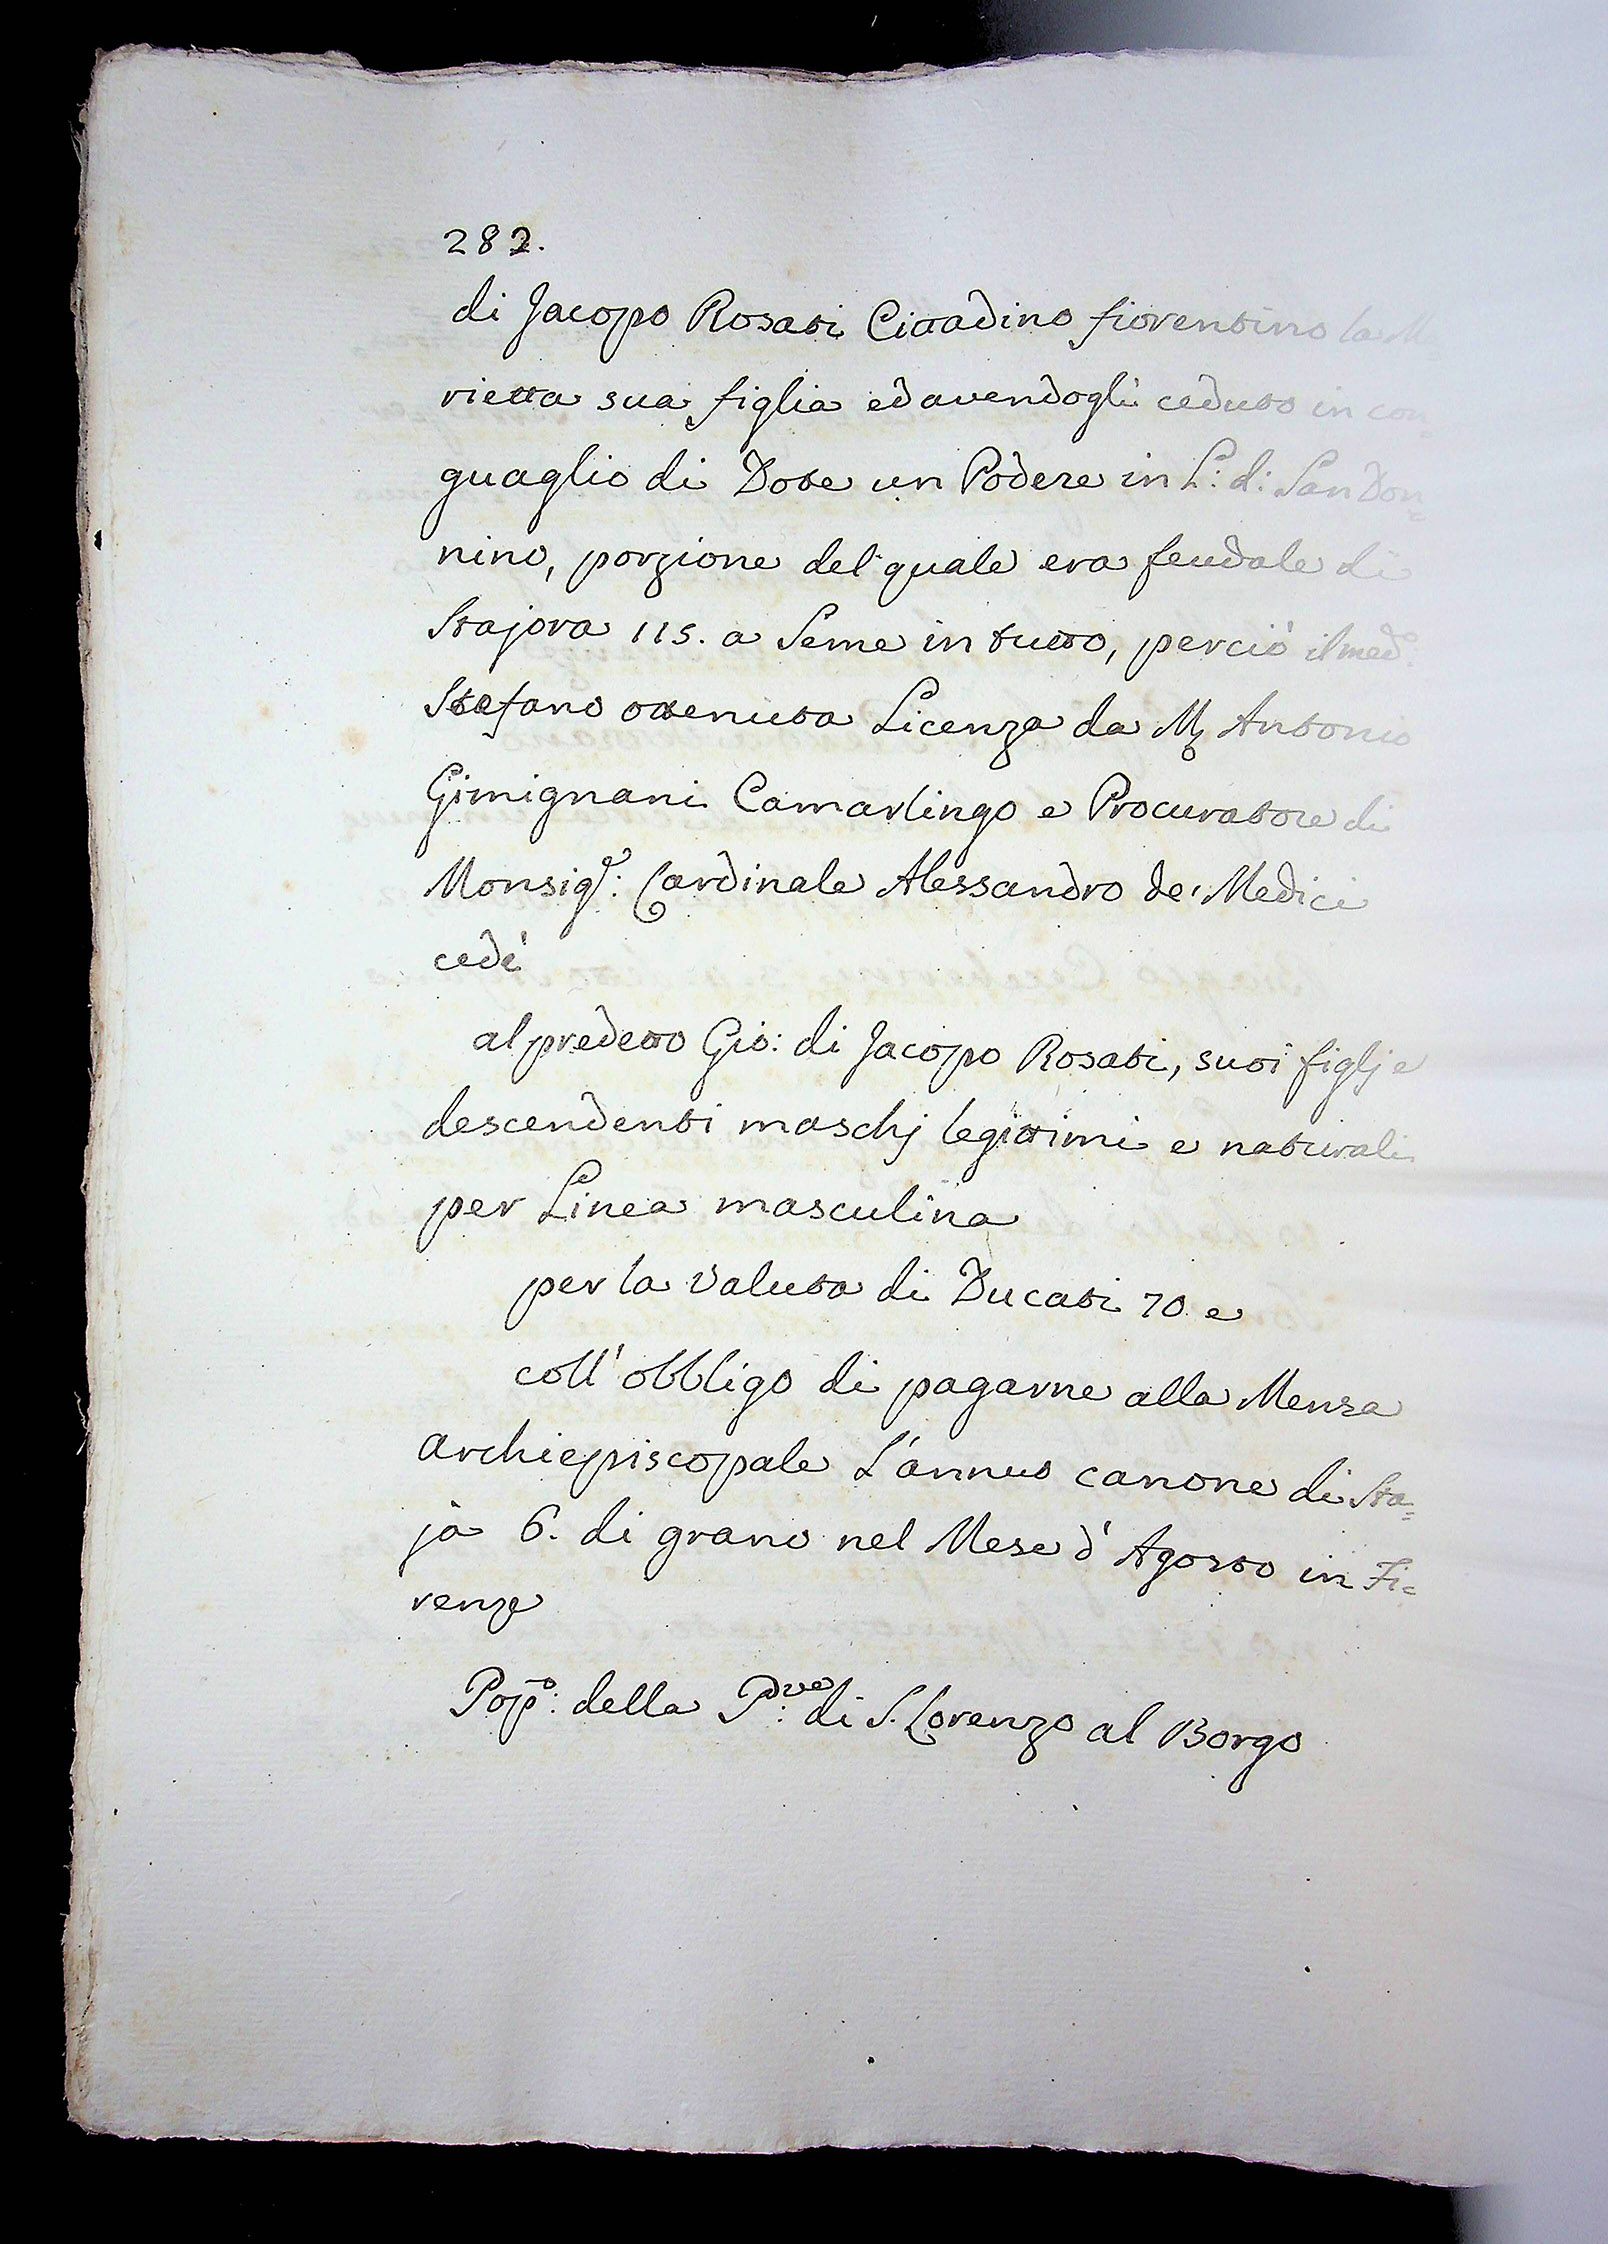 282.
di Jacopo Rosati Cittadino fiorentino la Ma
rietta sua figlia ed avendogli ceduto in con=
guaglio di Dote un Podere in L: d: San Don=
nino, porzione del quale era feudale di
Stajora 115. a Seme in tutto, perciò il med.o
Stefano ottenuta Licenza da M Antonio
Gimignani Camarlingo e Procuratore di
Monsig.r: Cardinale Alessandro de' Medici
cedè
al predetto Gio: di Jacopo Rosati, suoi figlj e
descendenti maschj legittimi e naturali
per Linea masculina
per la Valuta di Ducati 70 e
coll' obbligo di pagarne alla Mensa
Archiepiscopale L'annuo canone di Sta=
ja 6. di grano nel Mese d' Agosto in Fi=
renze
Pop.o: della P.ve: di S. Lorenzo al Borgo